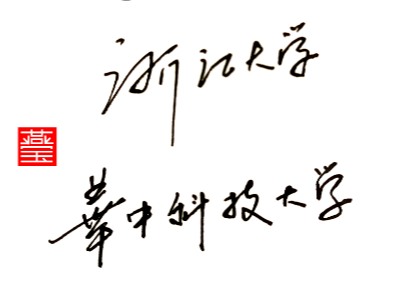 浙江大学
華中科技大学